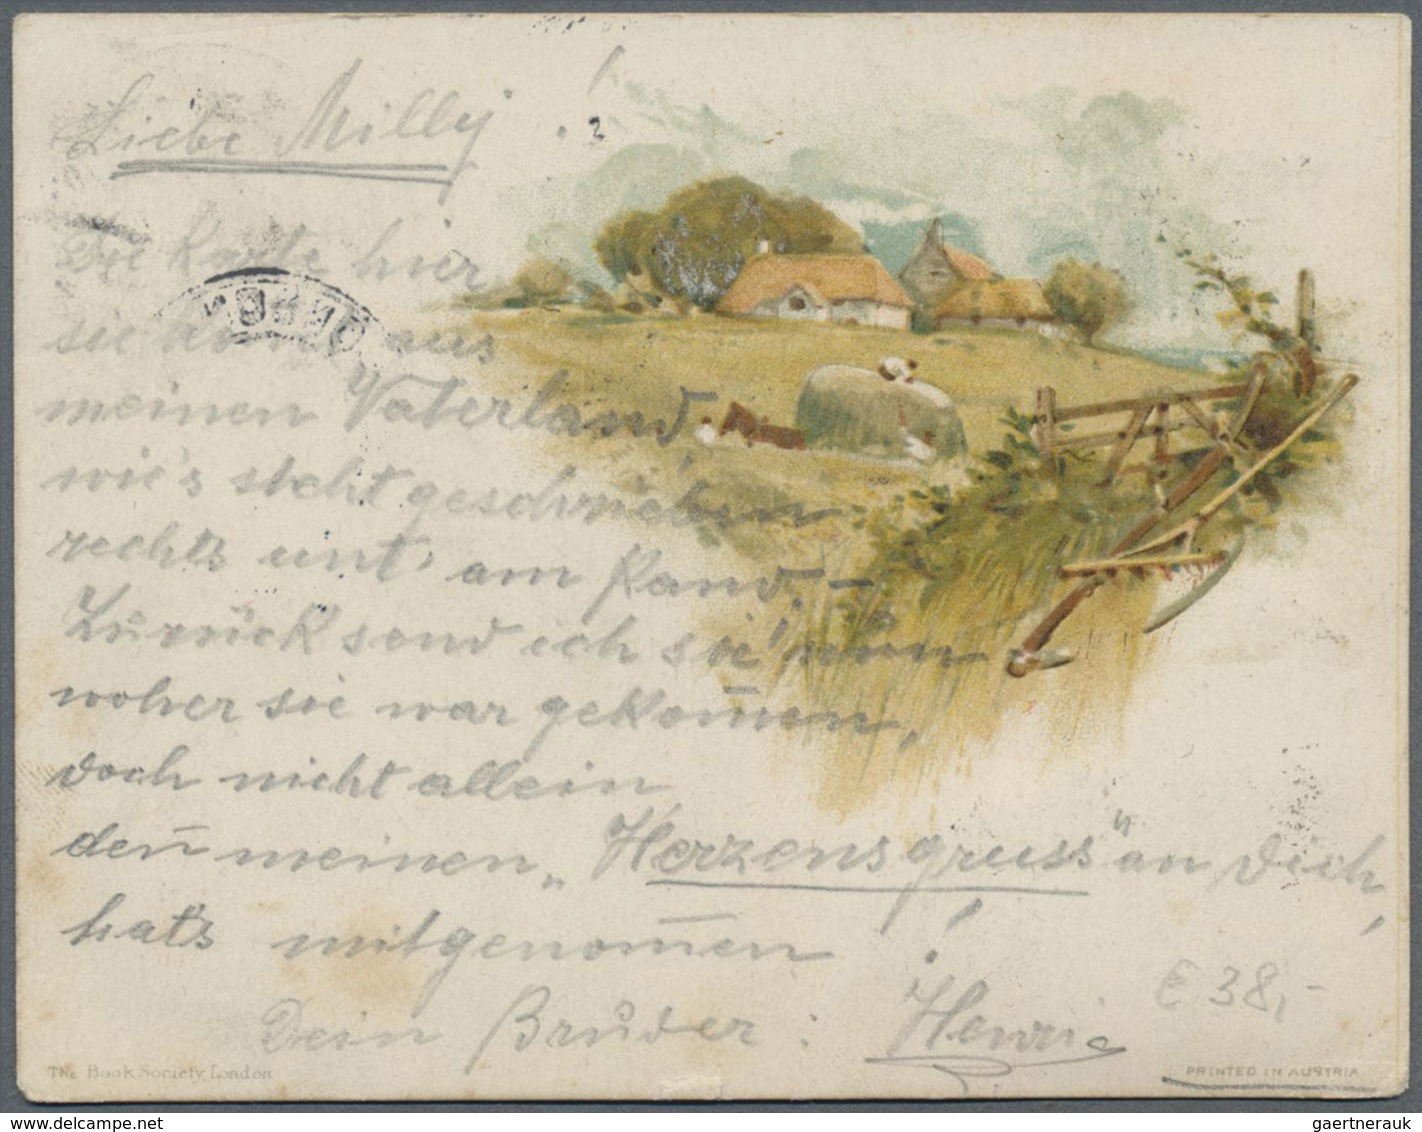 Liebe Milly !
Die Karte hier
sie kömt aus
meinen Vaterland,
wie's steht geschrieben
rechts unt' am Rand, –
Zurück send ich sie nun
woher sie war gekom̄en,
doch nicht allein
den̄ meinen „Herzensgruss" an Dich,
hat's mitgenom̄en !
Dein Brůder : Henri
€ 38,-
The Book Society, London
PRINTED IN AUSTRIA
gaertnerauk